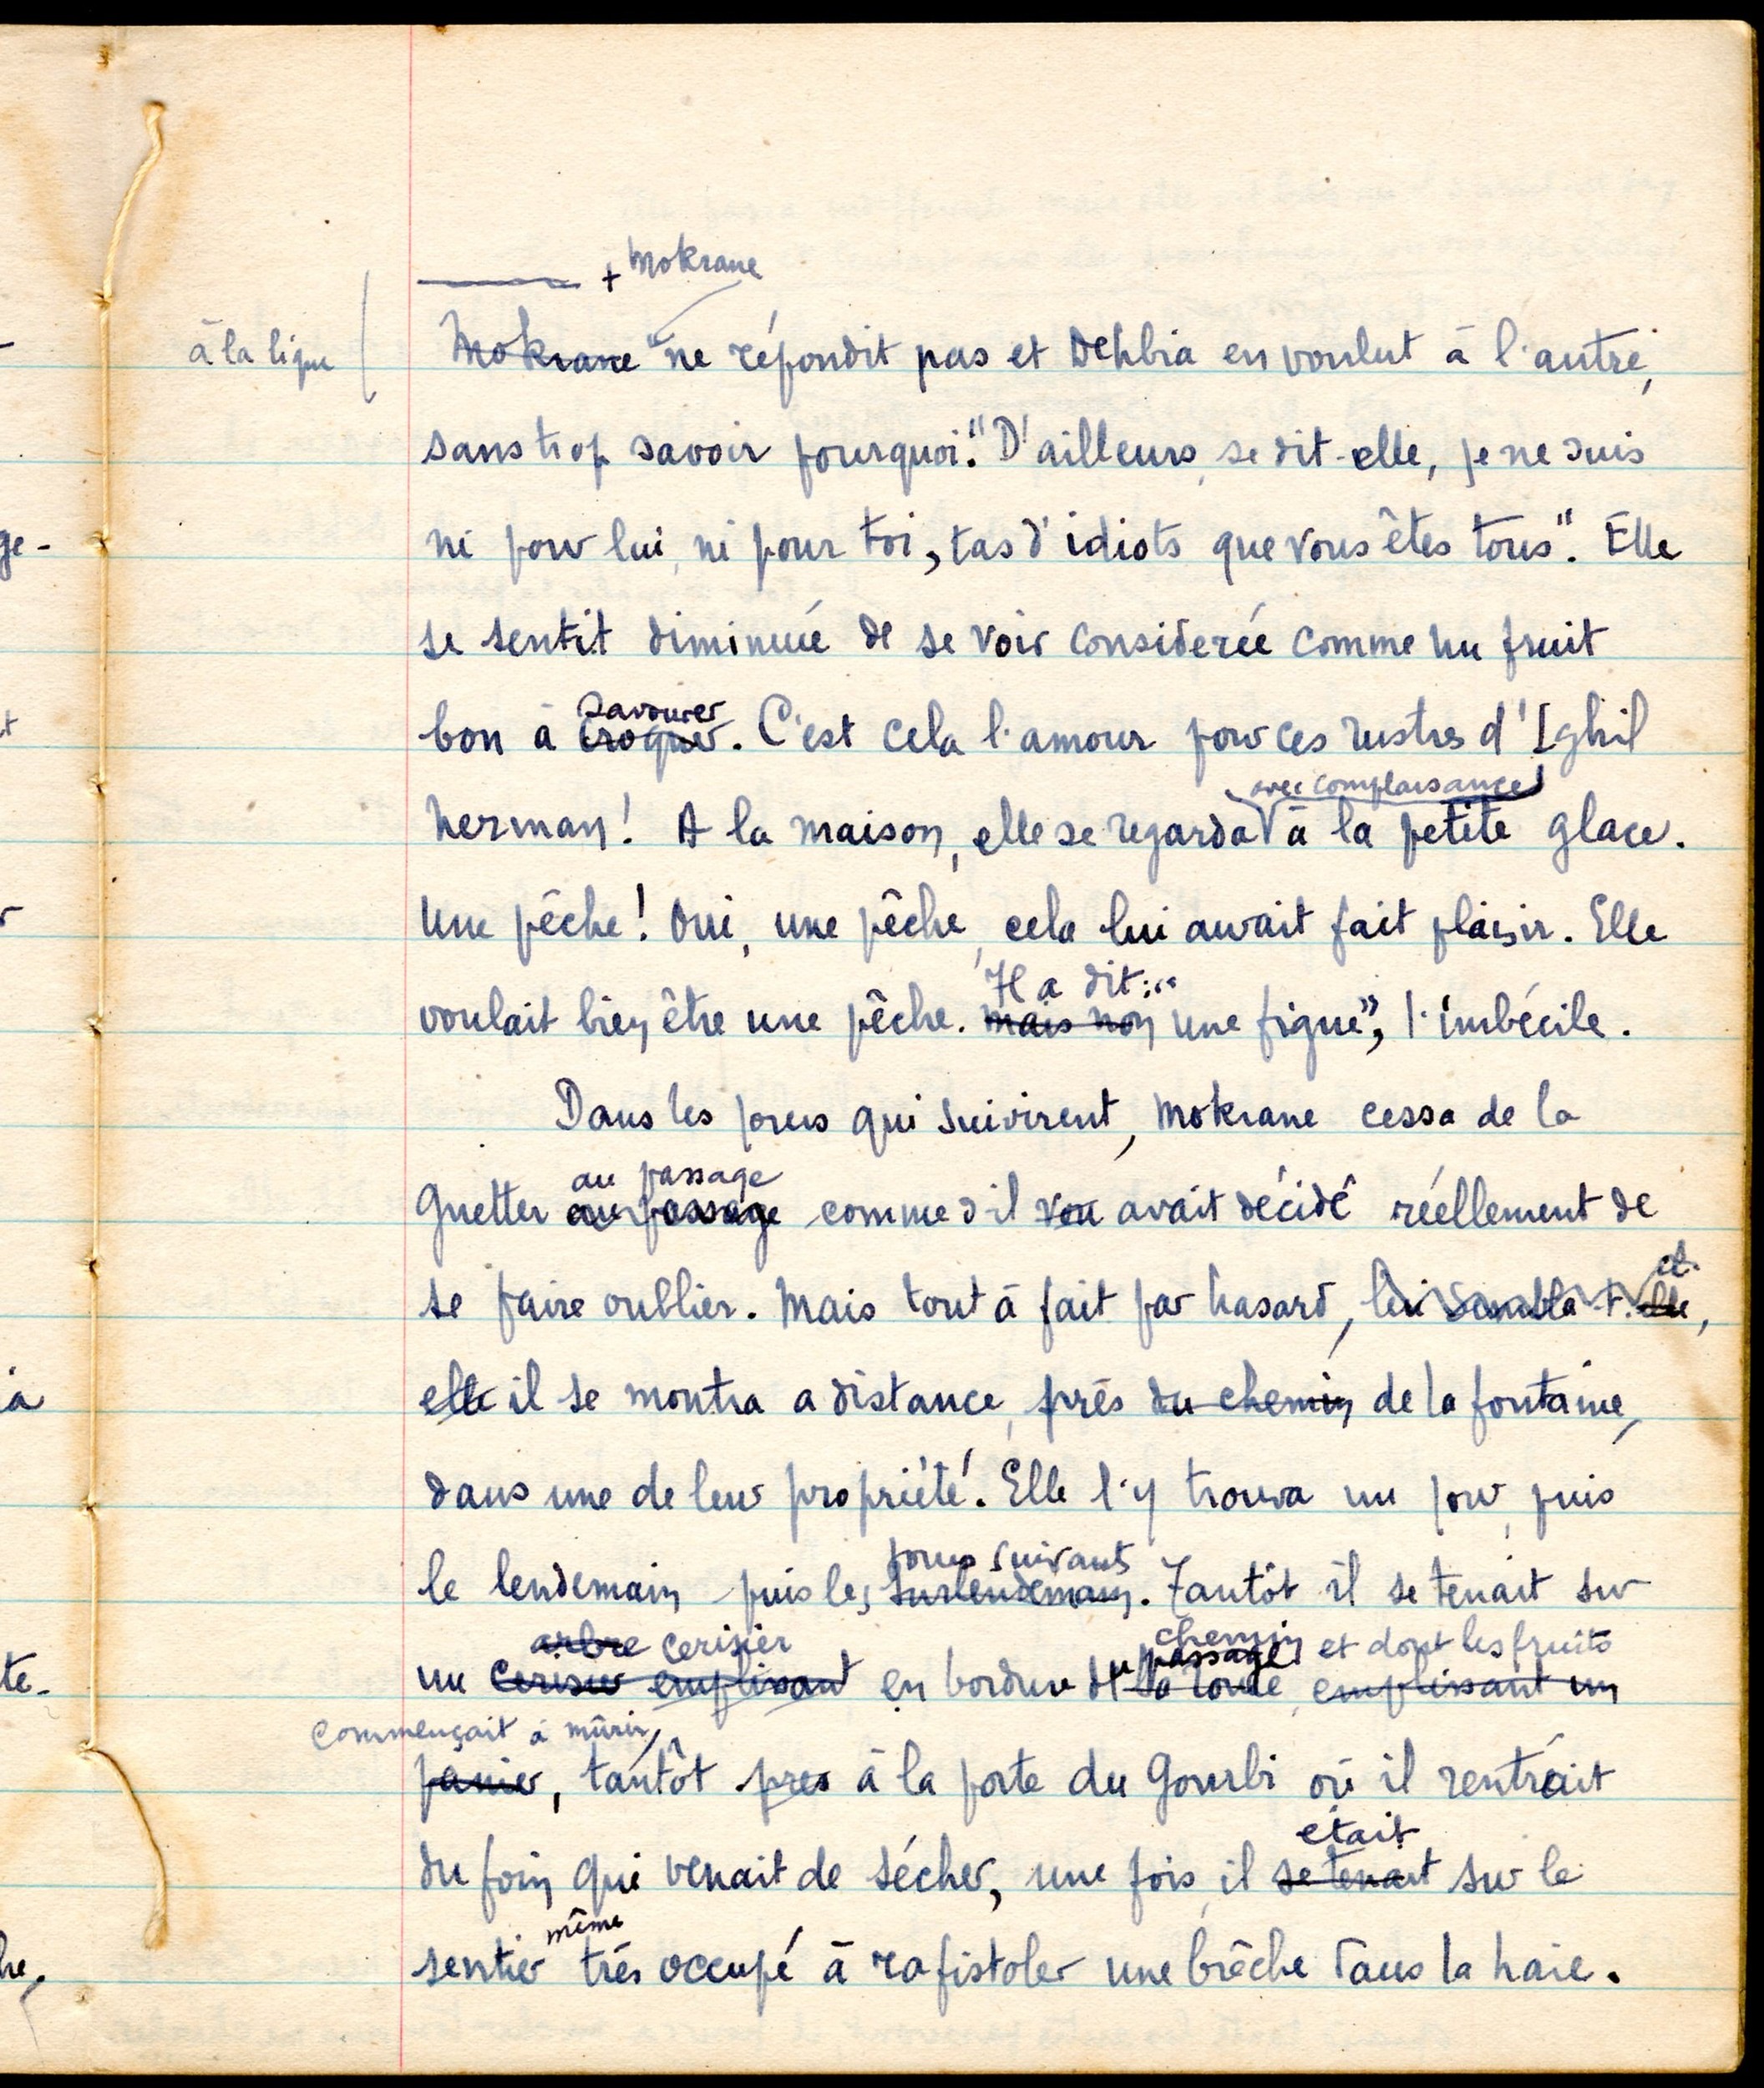 + Mokrane
à la ligne
Mokrane ne répondit pas et Dehbia en voulut à l'autre,
sans trop savoir pourquoi. "D'ailleurs, se dit-elle, je ne suis
ni pour lui, ni pour toi, tas d'idiots que vous êtes tous". Elle
se sentit diminuée de se voir considerée comme un fruit
savourer
bon à croquer. C'est cela l'amour pour ces rustres d'Ighil
avec complaisance
nezman! A la maison, elle se regarda à la petite glace.
Une pêche! Oui, une pêche, cela lui aurait fait plaisir. Elle
Il a dit: "
voulait bien être une pêche. mais non une figue", l'imbécile.
Dans les jours qui suivirent, Mokrane cessa de la
au passage
guetter au passage comme s'il avait décidé réellement de
et
se faire oublier. Mais tout à fait par hasard, lui sembla-t-elle,
elle il se montra a distance, près du chemin de la fontaine,
dans une de leur propriété. Elle l'y trouva un jour, puis
jours suivants
le lendemain puis les surlendemain. Tantôt il se tenait sur
arbre cerisier chemin passage et dont les fruits
un cerisier emplissant en bordure du la route, emplissant un
commençait à mûrir,
panier, tantôt pres à la porte du gourbi où il rentrait
était
du foin qui venait de sécher, une fois il se tenait sur le
même
sentier très occupé à rafistoler une brêche dans la haie.
ge-
te-